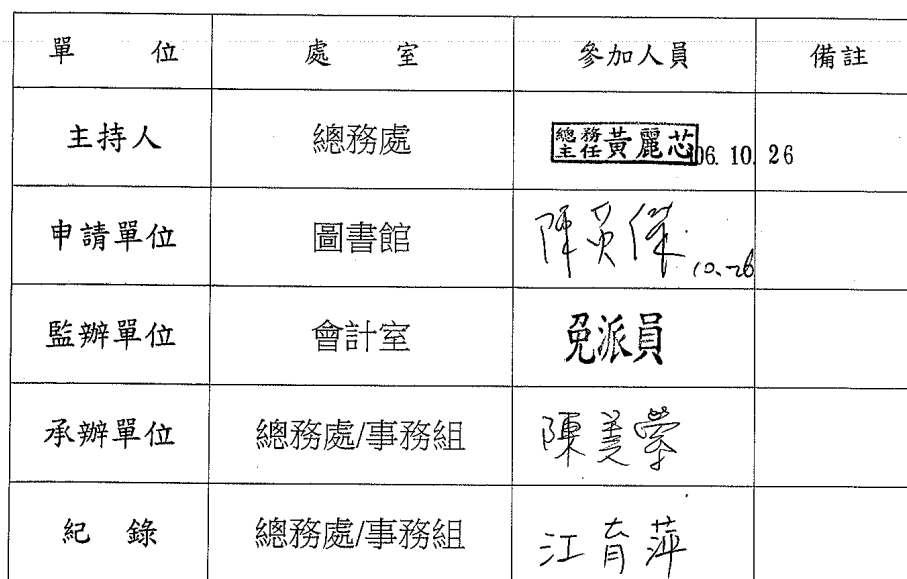 單 位 處 室 參加人員 備註
主持人 總務處 總務主任 黃麗芯 106. 10. 26
申請單位 圖書館 陳英傑 10.26
監辦單位 會計室 免派員
承辦單位 總務處/事務組 陳美縈
紀 錄 總務處/事務組 江育萍